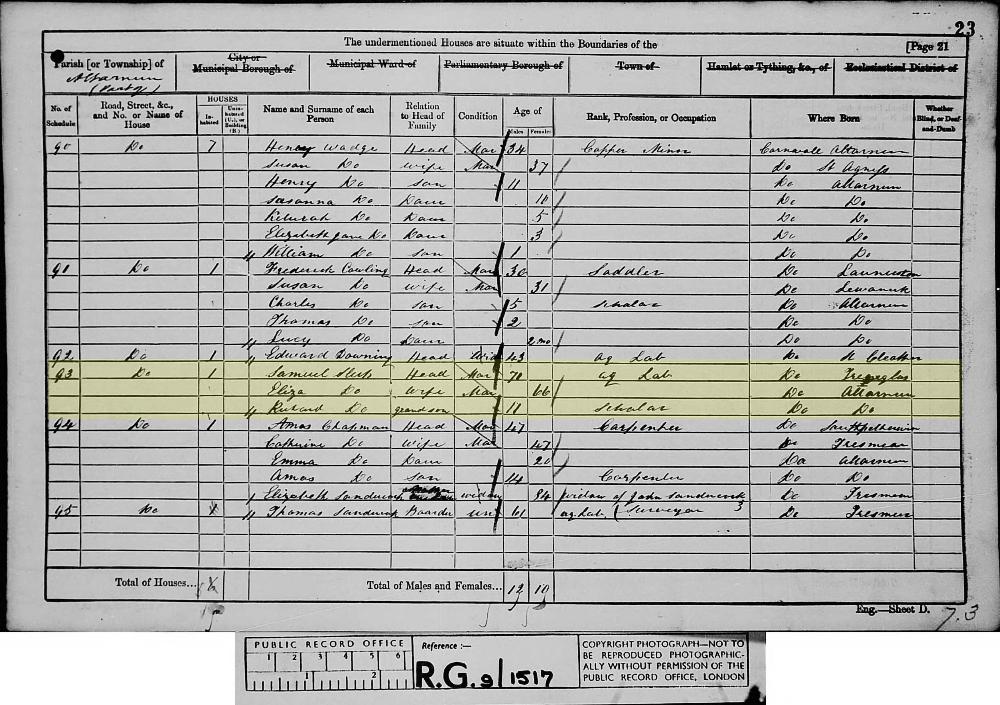 23
The undermentioned Houses are situate within the Boundaries of the
[Page 21
Parish [or Township] of
City or Municipal Borough of
Municipal Ward of
Parliamentary Borough of
Town of
Hamlet or Tything, &c., of
Ecclesiastical District of
Altarnun
(Part of)
No. of Schedule
Road, Street, &c., and No. or Name of House
HOUSES
Inhabited
Uninhabited (U.), or Building (B.)
Name and Surname of each Person
Relation to Head of Family
Condition
Age of
Males
Females
Rank, Profession, or Occupation
Where Born
Whether Blind, or Deaf-and-Dumb
90 Do 7 Henry Wadge Head Mar 34 Copper Miner Cornwall Altarnun
Susan Do Wife Mar 37 Do St Agness
Henry Do Son 11 Do Altarnun
Susanna Do Daur 10 Do Do
Do Daur 5 Do Do
Elizabeth Jane Do Daur 3 Do Do
William Do Son 1 Do Do
91 Do 1 Frederick Cowling Head Mar 30 Saddler Do Launceston
Susan Do Wife Mar 31 Do Lewannick
Charles Do Son 5 Scholar Do Altarnun
Thomas Do Son 2 Do Do
Lucy Do Daur 2 mo Do Do
92 Do 1 Edward Downing Head Wid 43 Ag Lab Do St Cleather
93 Do 1 Samuel Head Mar 70 Ag Lab Do Treneglos
Eliza Do Wife Mar 66 Do Altarnun
Richard Do grandson 11 Scholar Do Do
94 Do 1 Amos Chapman Head Mar 47 Carpenter Do
Catherine Do Wife Mar 47 Do Tresmeer
Emma Do Daur 20 Do Altarnun
Amos Do Son 14 Carpenter Do Do
Elizabeth Sandercock widow 84 widow of John Sandercock Do Tresmeer
95 Do Thomas Sandercock Boarder Un 61 ag Lab (Surveyor Do Tresmeer
Total of Houses...
Total of Males and Females... 12 10
Eng.—Sheet D.
7.3
PUBLIC RECORD OFFICE
1 2 3 4 5 6
1 2
Reference :—
R.G. 9/1517
COPYRIGHT PHOTOGRAPH—NOT TO
BE REPRODUCED PHOTOGRAPHIC-
ALLY WITHOUT PERMISSION OF THE
PUBLIC RECORD OFFICE, LONDON